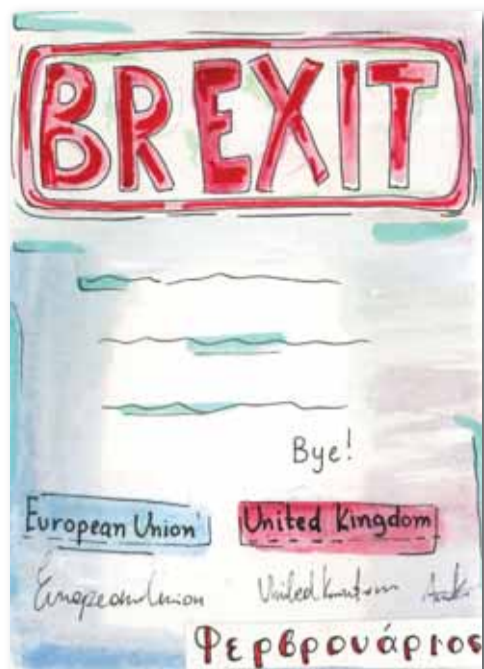 BREXIT
Bye!
European Union
United Kingdom
European Union
United Kingdom
Φερβρουάριος